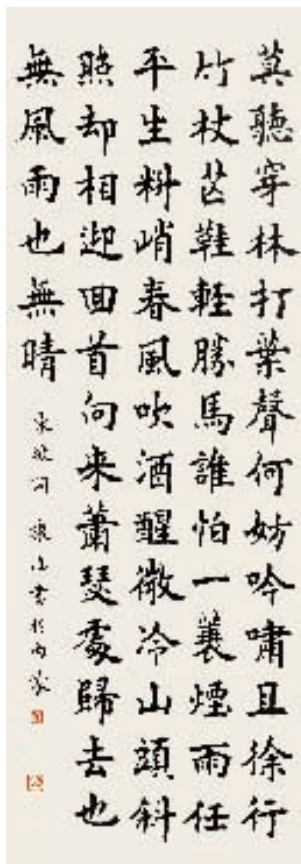 莫聽穿林打葉聲何妨吟嘯且徐行
竹杖芒鞋輕勝馬誰怕一蓑煙雨任
平生料峭春風吹酒醒微冷山頭斜
照却相迎回首向来蕭瑟處歸去也
無風雨也無晴
東坡詞 書於